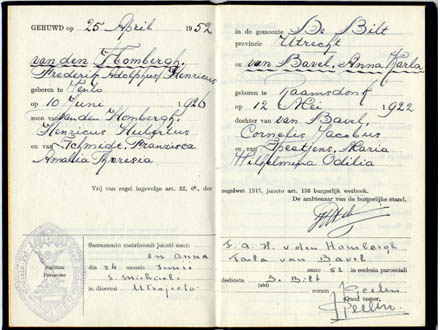 GEHUWD op 25 April 1952
van den Hombergh,
Frederik Adolphus Henricus
geboren te Venlo
op 10 Juni 1926
zoon van van den Hombergh,
Henricus Hubertus
en van Schmidt, Franzisca
Amalia Theresia
Vrij van zegel ingevolge art. 32, 6°, der
Sacramento matrimonii juncti sunt:
en Anna
die 26 mensis Junii
S. Michaelis
in dioecesi Utrajecto
in de gemeente De Bilt
provincie Utrecht
en van Bavel, Anna Karla
geboren te Raamsdonk
op 12 Mei 1922
dochter van van Bavel,
Cornelis Jacobus
en van Maria
Wilhelmina Odilia
zegelwet 1917, juncto art. 136 burgerlijk wetboek.
De ambtenaar van de burgerlijke stand,
F. A. H. v. den Hombergh
Karla van Bavel
anno 52 in ecclesia paroeciali
dedicata De Bilt
coram
Quod testor,